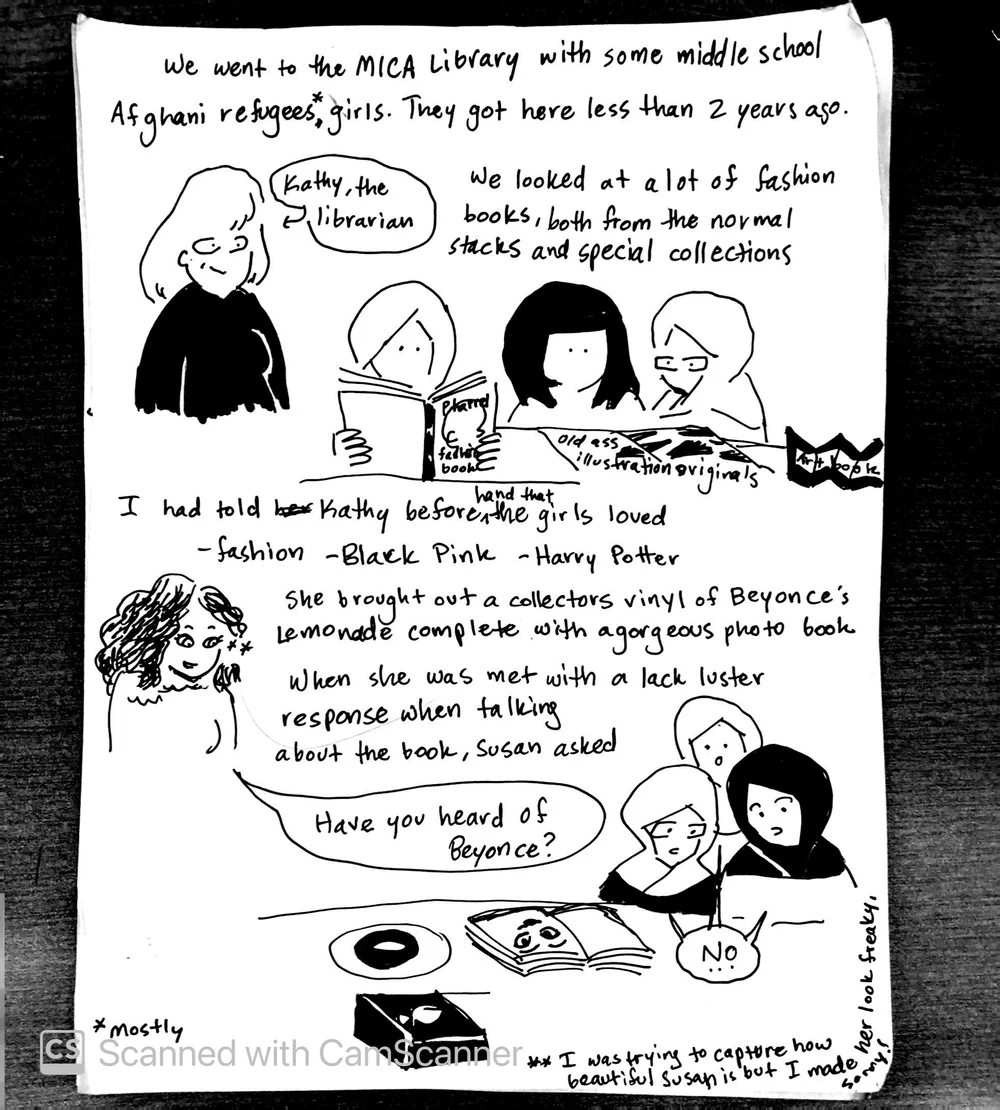 We went to the MICA Library with some middle school
Afghani refugees*, girls. They got here less than 2 years ago.
Kathy, the
librarian
We looked at a lot of fashion
books, both from the normal
stacks and special collections
fashion
book
old ass
illustration originals
Art book
hand that
I had told her Kathy before, the girls loved
-fashion -Black Pink -Harry Potter
She brought out a collectors vinyl of Beyonce's
Lemonade complete with a gorgeous photo book
**
When she was met with a lack luster
response when talking
about the book, Susan asked
Have you heard of
Beyonce?
NO
...
*mostly
** I was trying to capture how
beautiful Susan is but I made
her look freaky,
sorry!
CS Scanned with CamScanner